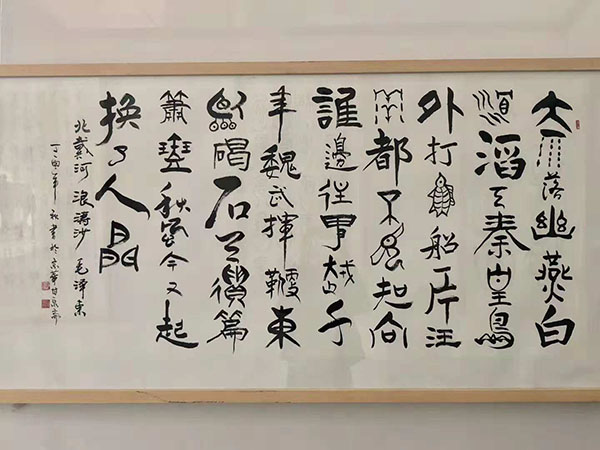 大雨落幽燕白
浪滔天秦皇島
外打魚船一片汪
洋都不見知向
誰邊往事越千
年魏武揮鞭東
臨碣石有遺篇
蕭瑟秋風今又是
換了人間
北戴河 浪濤沙 毛澤東
丁酉年 秋書於京華